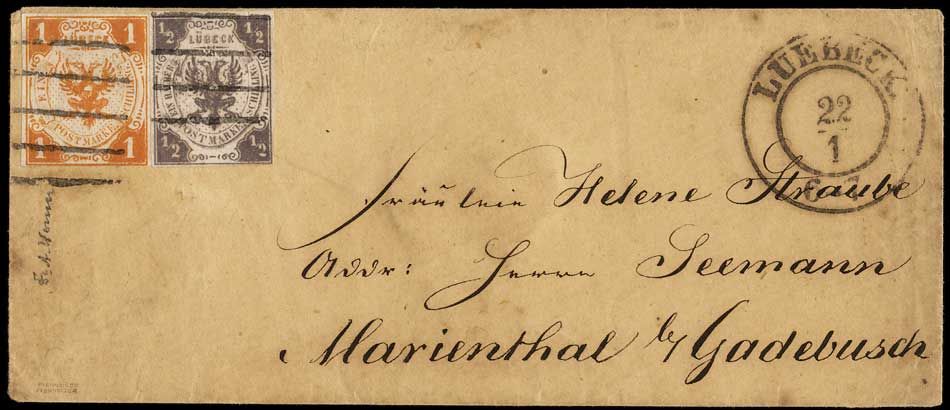 1 LÜBECK 1
POSTMARKE
1 1
1/2 LÜBECK 1/2
POSTMARKE
1/2 1/2
LUEBECK
22
1
6-7
Fräulein Helene Straube
Addr: Herrn Seemann
Marienthal b/ Gadebusch